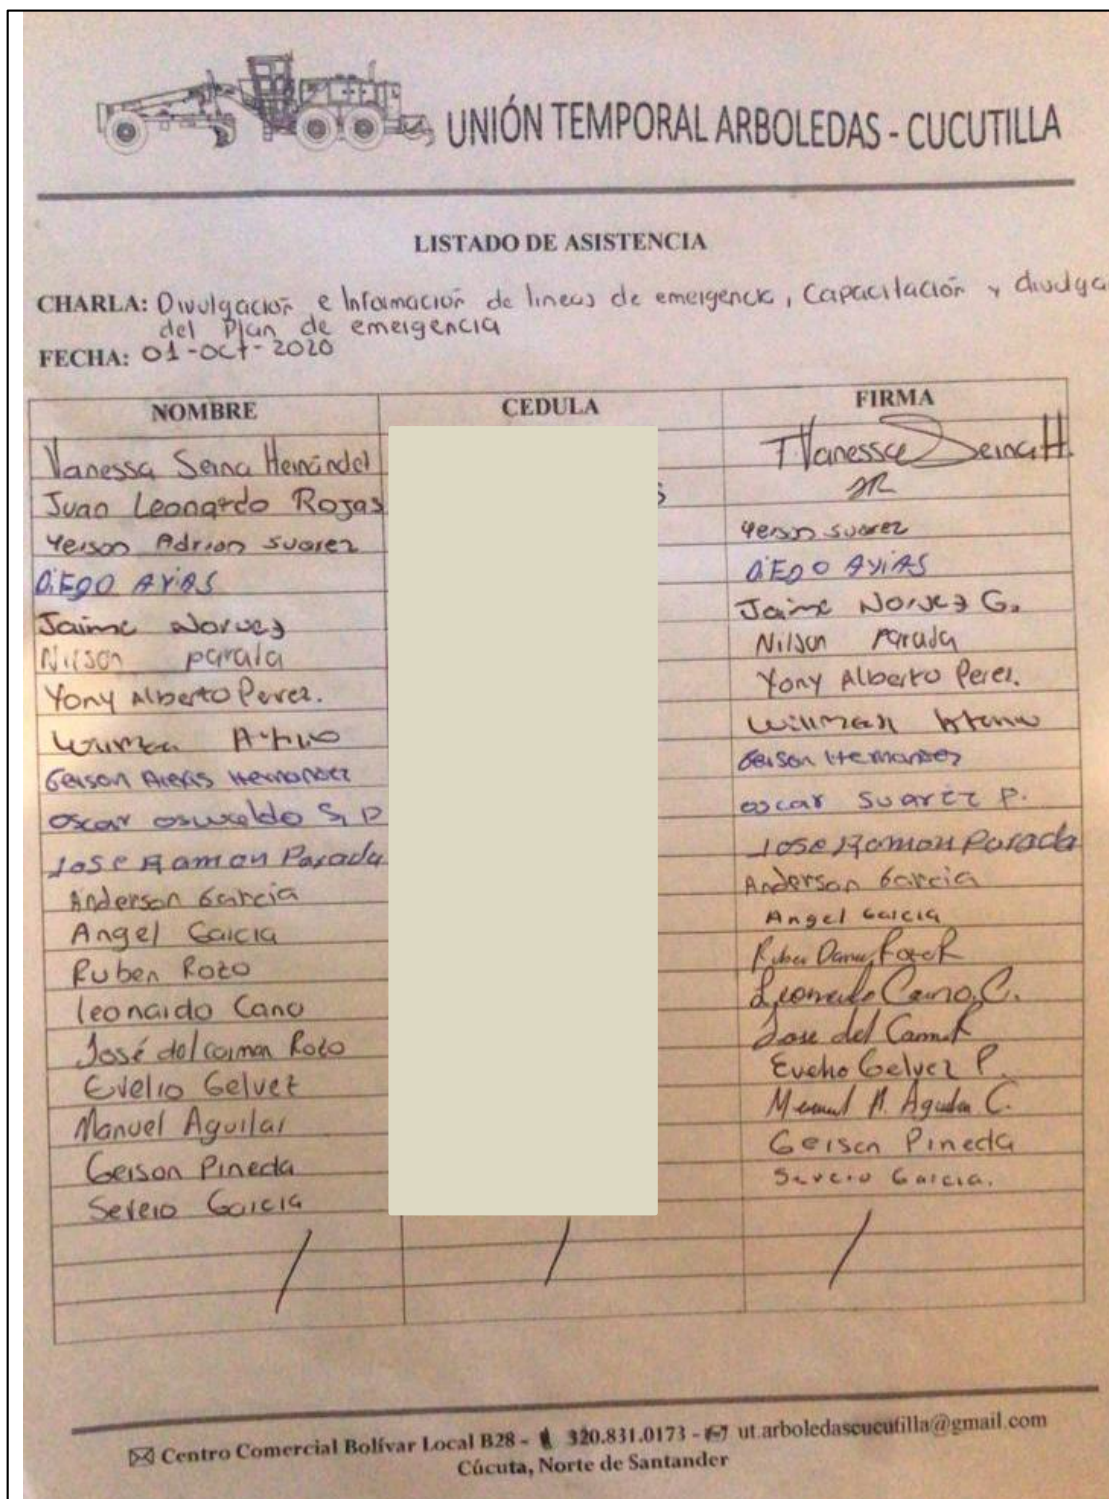 UNIÓN TEMPORAL ARBOLEDAS - CUCUTILLA
LISTADO DE ASISTENCIA
CHARLA: Divulgación e Información de lineas de emergencia, Capacitación y divulga
del Plan de emergencia
FECHA: 01-oct-2020
NOMBRE CEDULA FIRMA
Vanessa Serna Hernández Vanessa Serna H.
Juan Leonardo Rojas JR
Yeison Adrian Suarez Yeison Suarez
DiEgO AriAS DiEgO AriAS
Jaime Norvez Jaime Norvez G.
Nilson parada Nilson Parada
Yony Alberto Perez. Yony Alberto Perez.
Willman
Geison Alexis Hernandez Geison Hernandez
oscar oswaldo S. P oscar Suarez P.
Jose Ramon Parada Jose Ramon Parada
Anderson Garcia Anderson Garcia
Angel Garcia Angel Garcia
Ruben Rozo Ruben
leonardo Cano Leonardo Cano C.
José del carmen Rozo Jose del Carmen R
Evelio Gelvez Evelio Gelvez P.
Manuel Aguilar Manuel A. Aguilar C.
Geison Pineda Geison Pineda
Severo Garcia Severo Garcia.
Centro Comercial Bolívar Local B28 - 320.831.0173 - ut.arboledascucutilla@gmail.com
Cúcuta, Norte de Santander